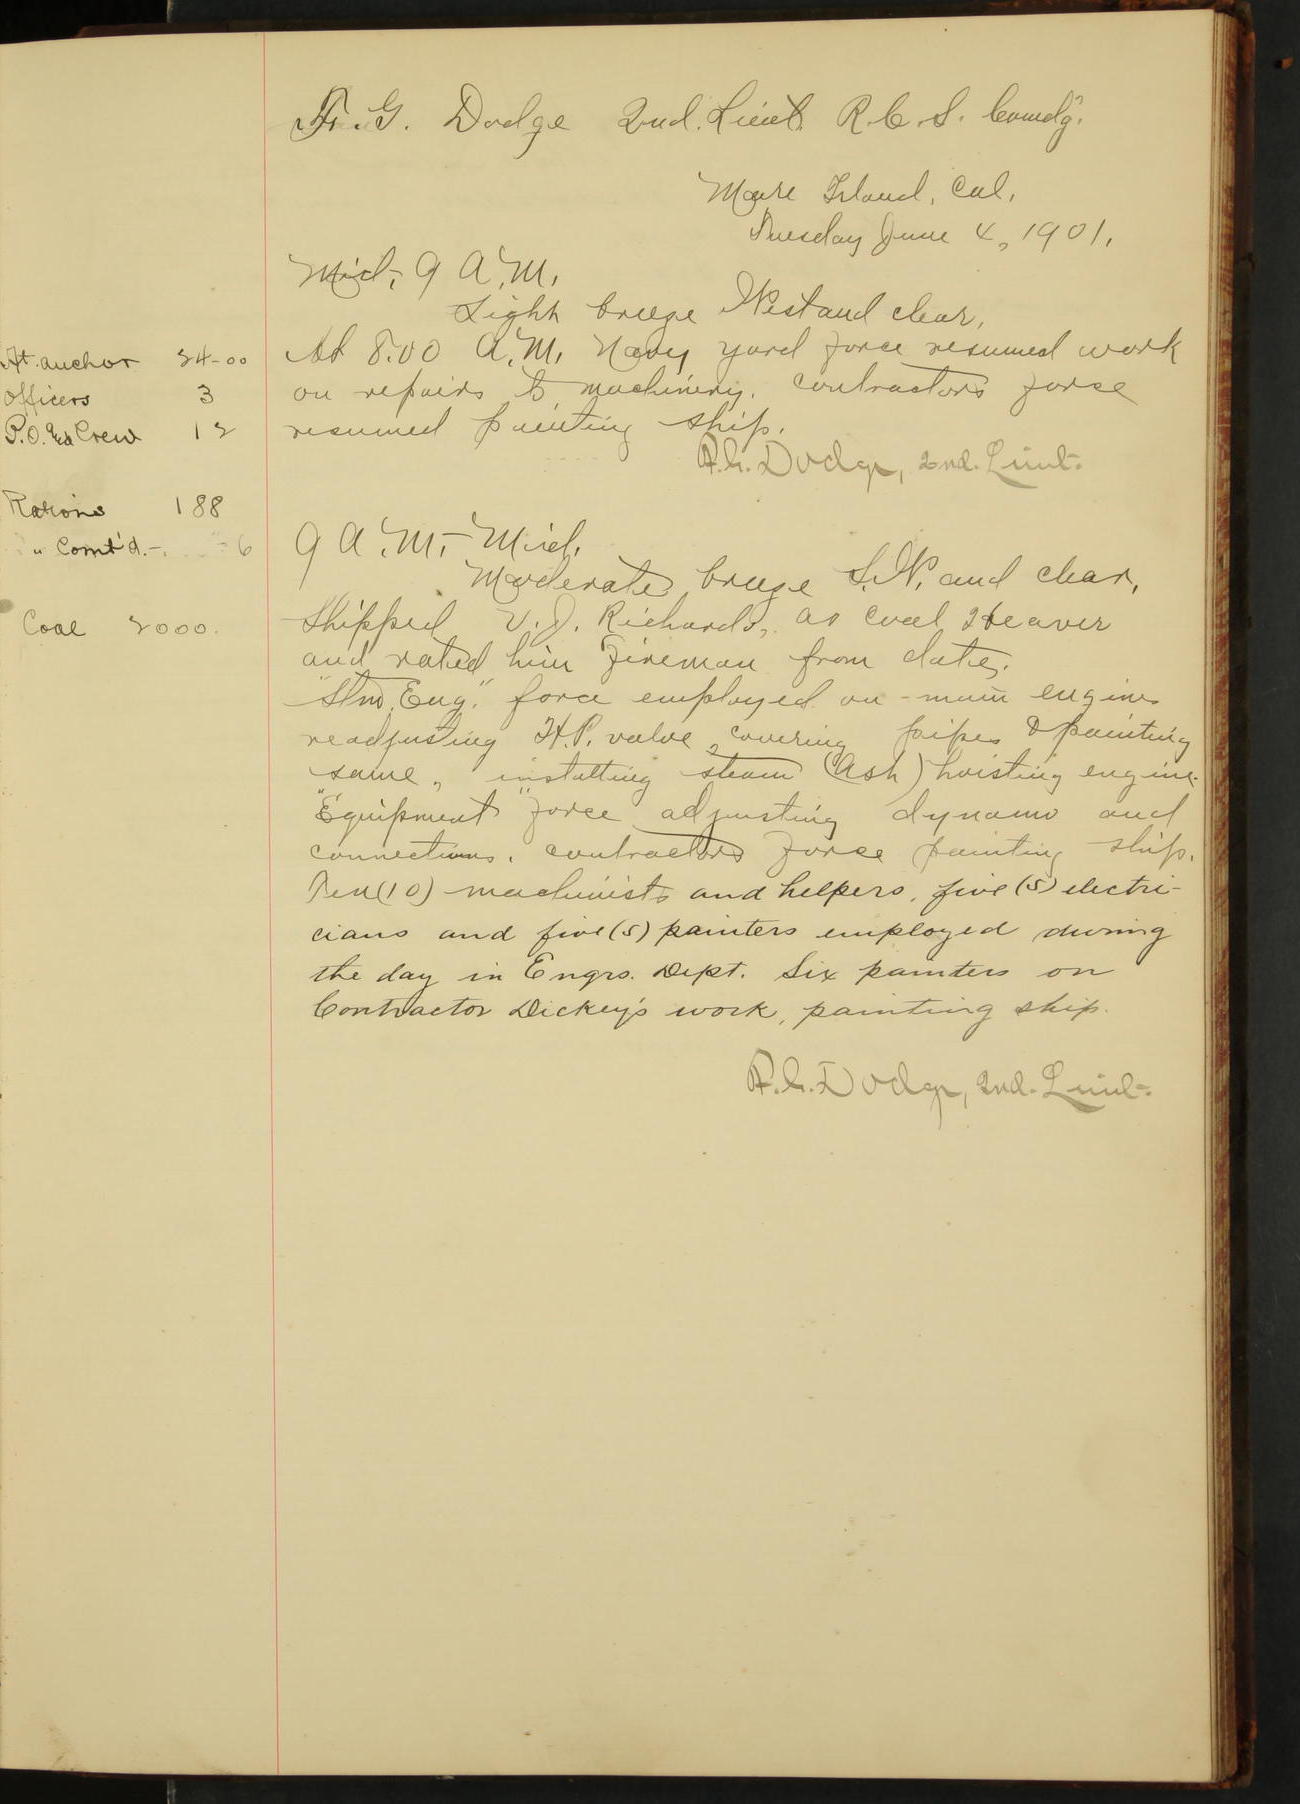 F. G. Dodge 2nd. Lieut. R.C.S. Comdg.
Mare Island, Cal.
Tuesday June 4, 1901.
Mid.- 9 A.M.
Light breeze West and clear.
At 8.00 A.M. Navy yard force resumed work
on repairs to machinery. contractors force
resumed painting ship.
F.G. Dodge, 2nd. Lieut.
At anchor 24-00
Officers 3
P.O. & Crew 12
Rations 188
" Comt'd.- 6
Coal 2000.
9 A.M.- Mid.
Moderate breeze S.W. and clear.
Shipped V.J. Richards, as Coal Heaver
and rated him Fireman from date.
"Stm. Eng." force employed on main engine
readjusting H.P. valve, covering pipes & painting
same, installing steam (Ash) hoisting engine.
"Equipment" force adjusting dynamo and
connections. contractors force painting ship.
Ten (10) machinists and helpers, five (5) electri-
cians and five (5) painters employed during
the day in Engrs. Dept. Six painters on
Contractor Dickey's work, painting ship.
F.G. Dodge, 2nd. Lieut.